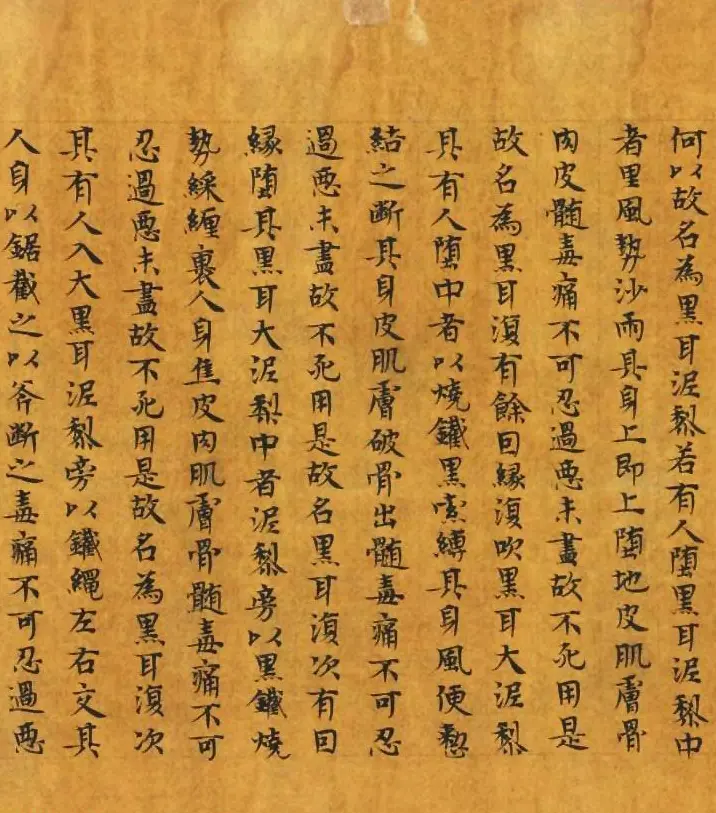 何以故名為黒耳泥犁若有人堕黒耳泥犁中
者里風勢沙雨其身上即上堕地皮肌膚骨
肉皮髓毒痛不可忍過惡未盡故不死用是
故名為黒耳復有餘因緣復吹黒耳大泥犁
其有人堕中者以燒鐵黒索縛其身風便懃
結之斷其身皮肌膚破骨出髓毒痛不可忍
過惡未盡故不死用是故名黒耳復次有因
緣堕其黒耳大泥犁中者泥犁旁以黒鐵燒
勢綵纏裹人身焦皮肉肌膚骨髓毒痛不可
忍過惡未盡故不死用是故名為黒耳復次
其有人入大黒耳泥犁旁以鐵繩左右交其
人身以鋸截之以斧斷之毒痛不可忍過惡